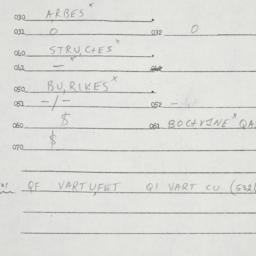 030 ARBES*
031 0 032 0
040 STRUCTES*
041 —
050 BU,RIKES*
051 -/- 052 -
060 $ 061 BOCHVINE* QA
070 $
QF VARTUFET QI VART CU (532)